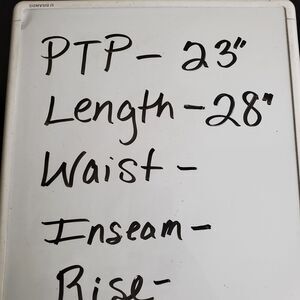 PTP - 23"
Length - 28"
Waist -
Inseam -
Rise -